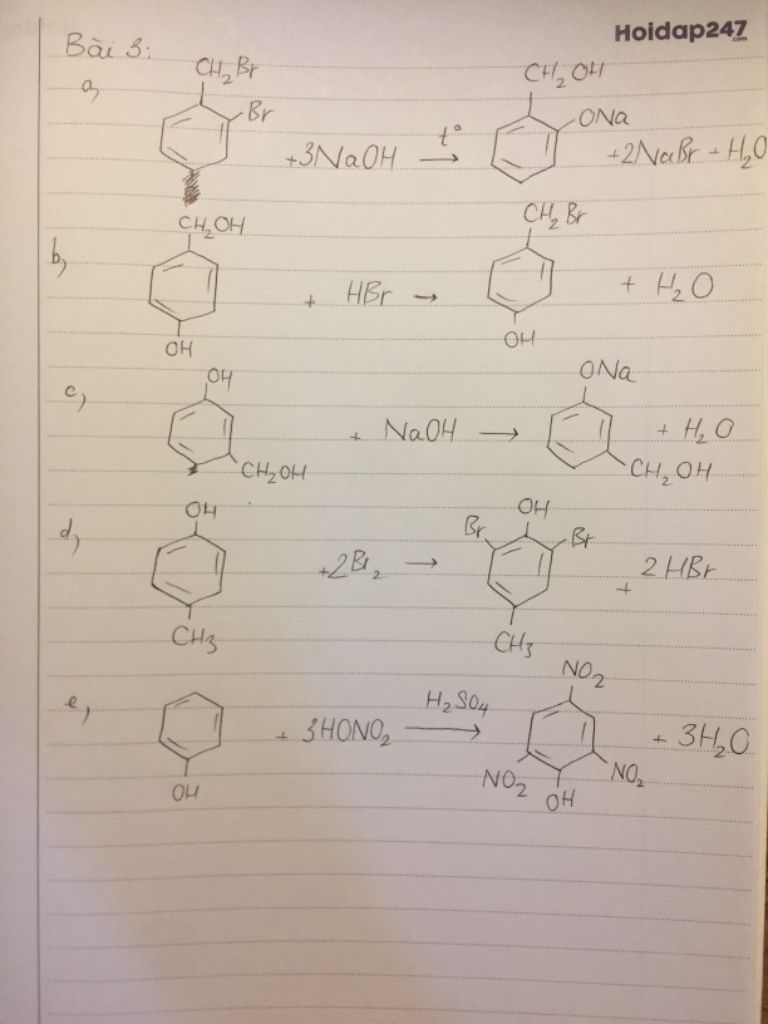 Hoidap247
.com
Bài 3:
a,
CH₂Br
Br
+3NaOH
t°
→
CH₂OH
ONa
+2NaBr + H₂O
b,
CH₂OH
OH
+ HBr →
CH₂Br
OH
+ H₂O
c,
OH
CH₂OH
+ NaOH →
ONa
CH₂OH
+ H₂O
d,
OH
CH₃
+2Br₂ →
OH
Br
Br
CH₃
+ 2HBr
e,
OH
+ 3HONO₂
H₂SO₄
→
NO₂
NO₂
NO₂
OH
+ 3H₂O